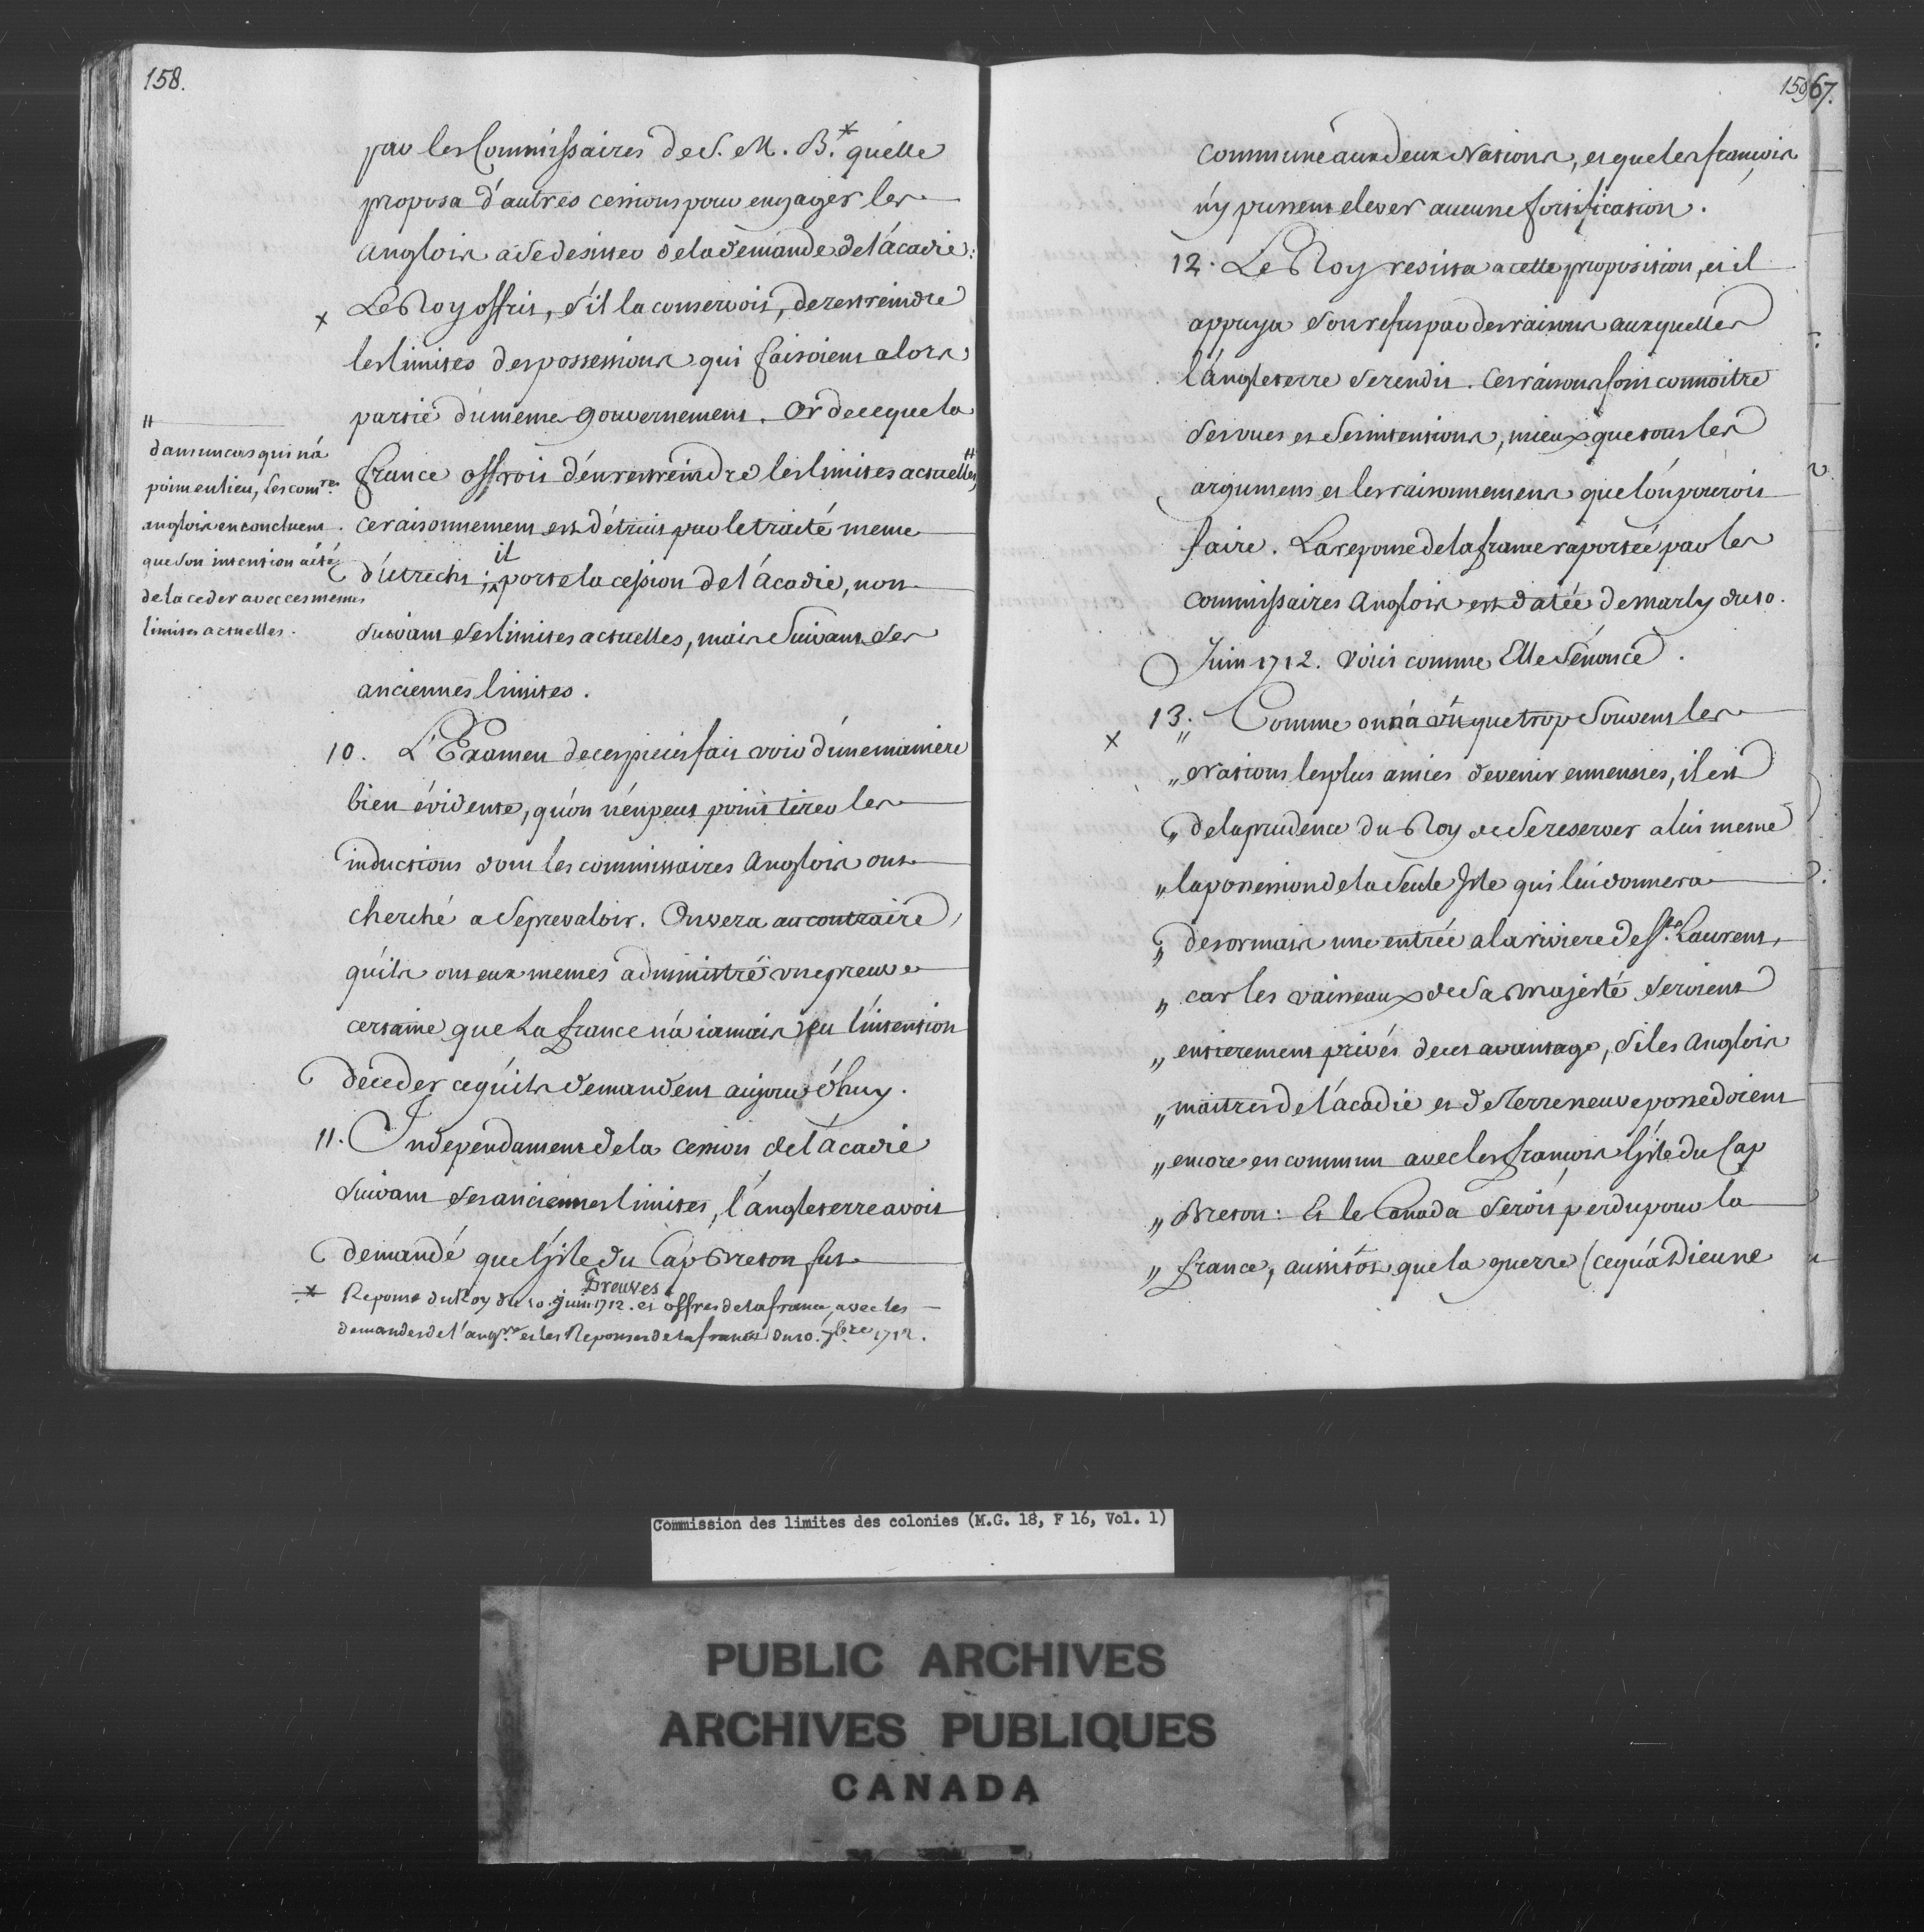 158.
par les Commissaires de S. M. B.* qu'elle
proposa d'autres cessions pour engager les
Anglois a se desister de la demande de l'acadie:
x Le Roy offrit, s'il la conservoit, de restreindre
les limites des possessions qui faisoient alors
partie du meme gouvernement. Or de ce que la
france offroit d'en restreindre les limites actuelles,#
ce raisonnement est détruit par le traité meme
d'utrecht; il porte la cession de l'acadie, non
suivant ses limites actuelles, mais suivant ses
anciennes limites.
#
dans un cas qui n'a
point eu lieu, les com.res
anglois en concluent
que son intention a été
de la ceder avec ces memes
limites actuelles.
10. L'Examen de ces pieces fait voir d'une maniere
bien évidente, qu'on n'en peut point tirer les
inductions dont les commissaires Anglois ont
cherché a se prevaloir. On vera au contraire,
qu'ils ont eux memes administré une preuve
certaine que La france n'a iamais eu l'intension
de ceder ce qu'ils demandent aujourd'huy.
11. Independament de la cession de l'acadie
suivant ses anciennes limites, l'angleterre avoit
demandé que l'isle du Cap Breton fut
* Reponse du Roy du 10. juin 1712. et offres de la france, avec les
Preuves
demandes de l'ang.re et les Reponses de la france du 10. 7bre 1712.
159 67.
commune aux deux Nations, et que les françois
n'y pussent elever aucune fortification.
12. Le Roy resista a cette proposition, et il
appuya son refus par des raisons auxquelles
l'Angleterre se rendit. Ces raisons font connoitre
ses vues et ses intensions, mieux que tous les
argumens et les raisonnemens que l'on pouroit
faire. La reponse de la france raportée par les
commissaires Anglois est datée de marly du 10.
Juin 1712. voici comme Elle s'énonce.
x 13. „ Comme on n'a vû que trop souvent les
„ Nations les plus amies devenir ennemies, il est
„ de la prudence du Roy de se reserver a lui meme
„ la possession de la seule Isle qui lui donnera
„ desormais une entrée a la riviere de St. Laurent,
„ car les vaisseaux de Sa Majesté seroient
„ entierement privés de cet avantage, si les Anglois
„ maitres de l'acadie et de Terreneuve possedoient
„ encore en commun avec les françois l'isle du Cap
„ Breton: Et le Canada seroit perdu pour la
„ france, aussitôt que la guerre (ce qu'a Dieu ne
Commission des limites des colonies (M.G. 18, F 16, Vol. 1)
PUBLIC ARCHIVES
ARCHIVES PUBLIQUES
CANADA